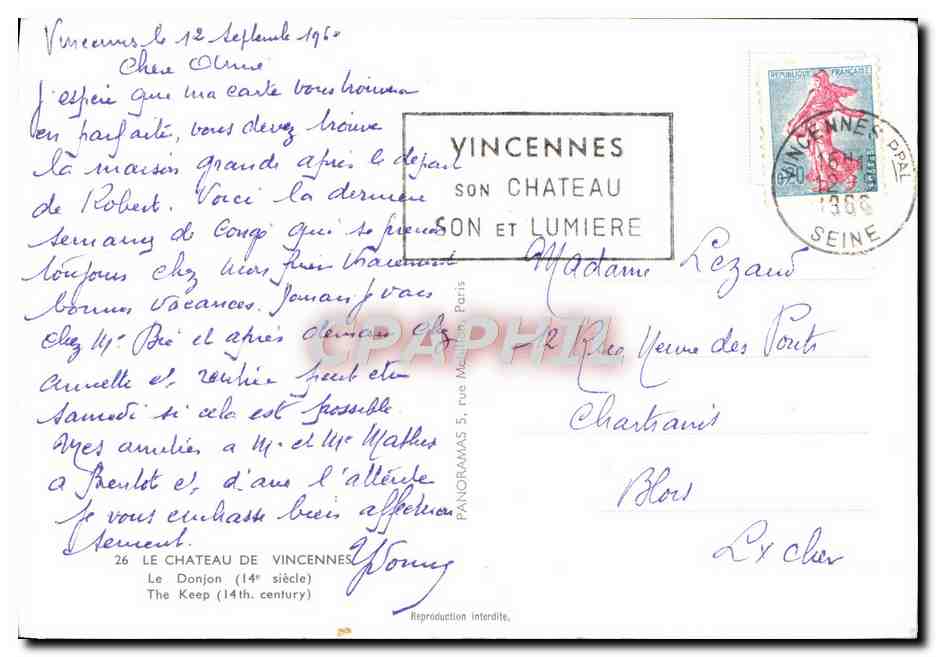 Vincennes le 12 Septembre 1960
Chere
J'espère que ma carte vous trouvera
en parfaite, vous devez trouve
la maison grande après le depart
de Robert. Voici la derniere
semaine de Congé qui se prend
toujours chez mon frère vraiment
bonnes vacances. Demain je vais
chez Me Bié et après demain chez
Annette et, rentrée peut etre
samedi si cela est possible.
Mes amitiés a Mr et Me Mathis
a Bientot et, d'ans l'attente
Je vous embrasse bien affectueu
sement.
Yvonne
26 LE CHATEAU DE VINCENNES
Le Donjon (14e siècle)
The Keep (14th. century)
VINCENNES
SON CHATEAU
SON ET LUMIERE
REPUBLIQUE FRANÇAISE
0,20
POSTES
VINCENNES PPAL
SEINE
PANORAMAS 5, rue Paris
CPAPHIL
Madame Lezaud
12 Rue des Ponts
Chartrains
Blois
L x Cher
Reproduction interdite.